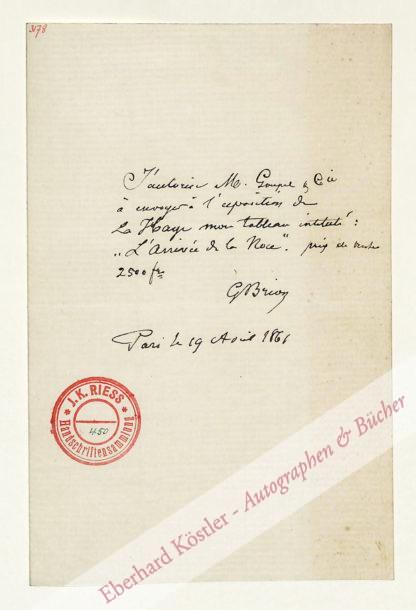 3178
J'autorise M. Goupil & Cie
à envoyer à l'exposition de
La Haye mon tableau intitulé :
„L'Arrivée de la Noce". prix de vente
2500 frs
G Brion
Paris le 19 Avril 1861
* J. K. RIESS *
450
Handschriftensammlung
Eberhard Köstler - Autographen & Bücher